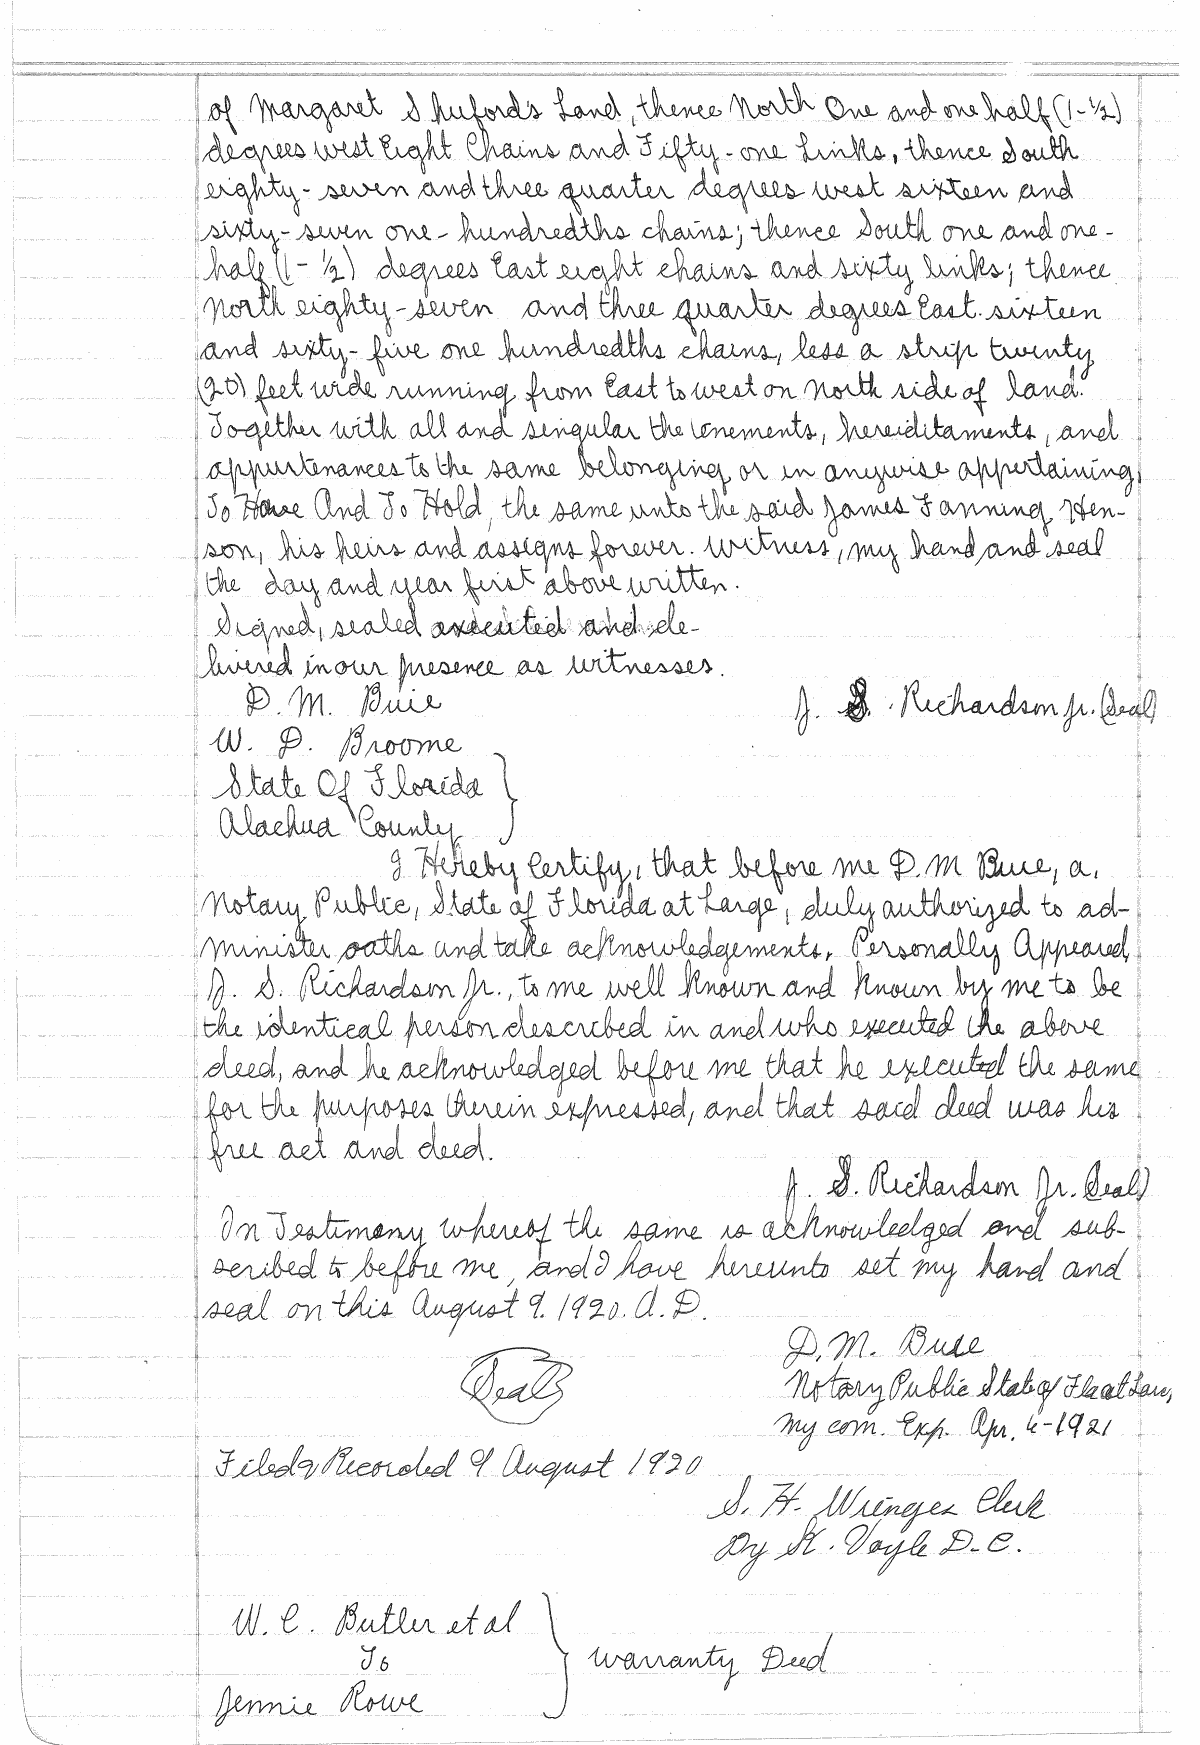 of Margaret Shuford's Land, thence North One and one half (1-½)
degrees west Eight Chains and Fifty-one Links, thence South
eighty-seven and three quarter degrees west sixteen and
sixty-seven one-hundredths chains; thence South one and one-
half (1-½) degrees East eight chains and sixty links; thence
North eighty-seven and three quarter degrees East. sixteen
and sixty-five one hundredths chains, less a strip twenty
(20) feet wide running from East to west on North side of land.
Together with all and singular the tenements, hereiditaments, and
appurtenances to the same belonging or in anywise appertaining,
To Have And To Hold, the same unto the said James Fanning Hen-
son, his heirs and assigns forever. Witness, my hand and seal
the day and year first above written.
Signed, sealed executed and de-
livered in our presence as witnesses.
D. M. Buie
J. S. Richardson Jr. (Seal)
W. D. Broome
State Of Florida
Alachua County
I Hereby Certify, that before me D. M Buie, a,
Notary Public, State of Florida at Large, duly authorized to ad-
minister oaths and take acknowledgements, Personally Appeared,
J. S. Richardson Jr., to me well known and known by me to be
the identical person described in and who executed the above
deed, and he acknowledged before me that he executed the same
for the purposes therein expressed, and that said deed was his
free act and deed.
J. S. Richardson Jr. Seal)
In Testimony whereof the same is acknowledged and sub-
scribed to before me, and I have hereunto set my hand and
seal on this August 9. 1920. A. D.
D. M. Buie
Seal
Notary Public State of Fla at Larg
My com. Exp. Apr. 4-1921
Filed & Recorded 9 August 1920
S. H. Wienges Clerk
By K. Voyle D. C.
W. C. Butler et al
To
Warranty Deed
Jennie Rowe